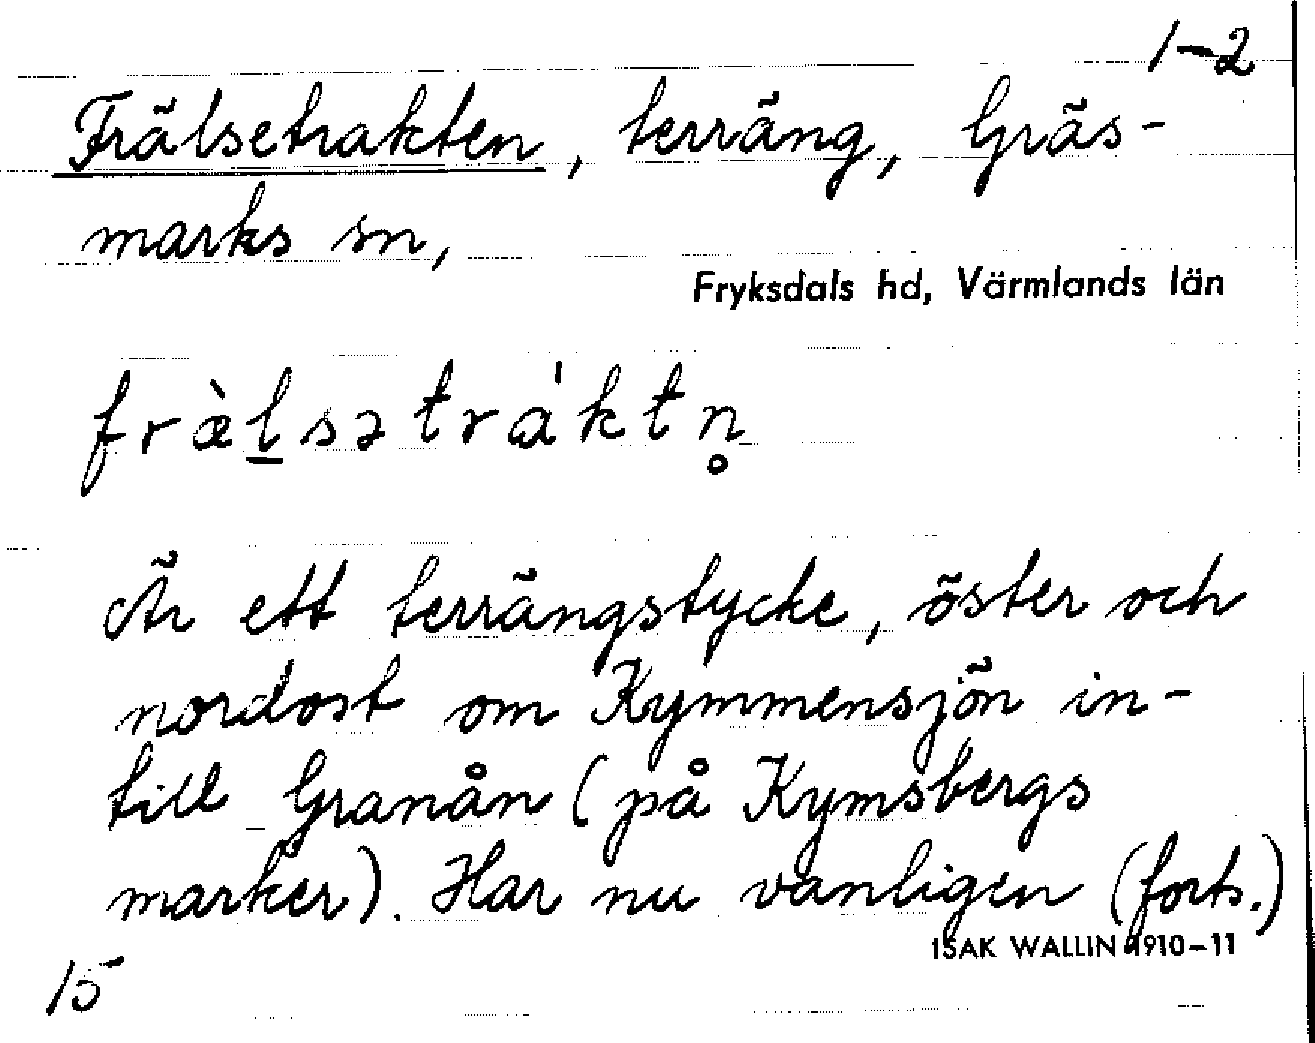 1-2
Frälsetrakten, terräng, Gräs-
marks sn,
Fryksdals hd, Värmlands län
fræ̀l̲sətrá'ktn̥
Är ett terrängstycke, öster och
nordost om Kymmensjön in-
till Granån (på Kymsbergs
marker). Har nu vanligen (forts.)
ISAK WALLIN 1910-11
15